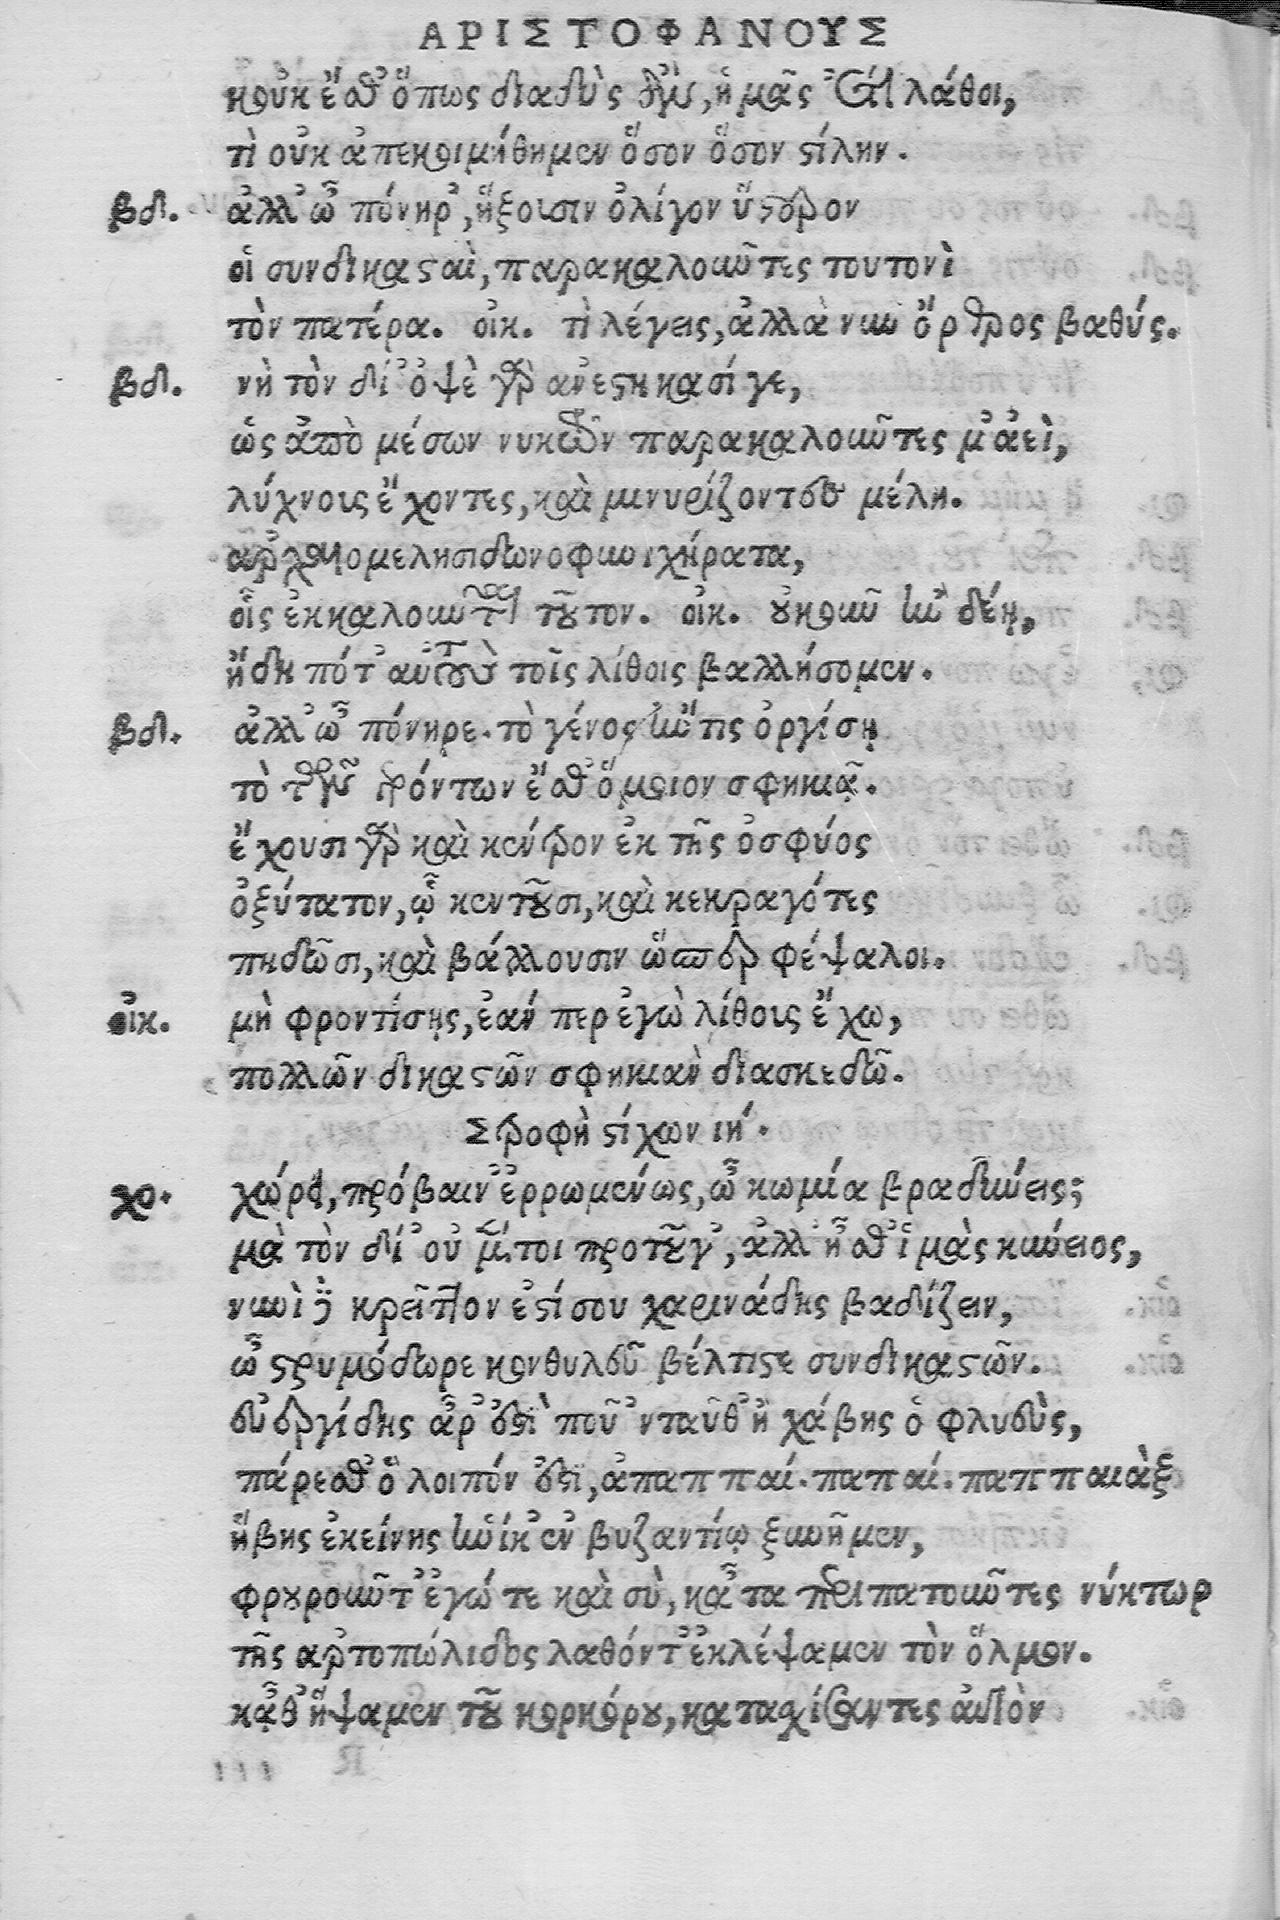 ΑΡΙΣΤΟΦΑΝΟΥΣ
κοὐκ ἔσθ' ὅπως διαδὺς ἂν, ἡμᾶς ἔτι λάθοι,
τὶ οὐκ ἀπεκοιμήθημεν ὅσον ὅσον στίλην.
βδ. ἀλλ' ὦ πόνηρ', ἥξουσιν ὀλίγον ὕστερον
οἱ συνδικασταὶ, παρακαλοῦντες τουτονὶ
τὸν πατέρα. οἰκ. τὶ λέγεις, ἀλλὰ νῦν ὄρθρος βαθύς.
βδ. νὴ τὸν δί' ὀψὲ γὰρ ἀνεστήκασί γε,
ὡς ἀπὸ μέσων νυκτῶν παρακαλοῦντες μ' ἀεὶ,
λύχνους ἔχοντες, καὶ μινυρίζοντες μέλη.
ἀρχαιομελησιδωνοφρυνιχήρατα,
οἷς ἐκκαλοῦνται τοῦτον. οἰκ. οὐκοῦν ἢν δέῃ,
ἤδη πότ' αὐτοὺς τοῖς λίθοις βαλλήσομεν.
βδ. ἀλλ' ὦ πόνηρε. τὸ γένος ἤν τις ὀργίσῃ
τὸ τῶν γερόντων ἔσθ' ὅμοιον σφηκιᾷ.
ἔχουσι γὰρ καὶ κέντρον ἐκ τῆς ὀσφύος
ὀξύτατον, ᾧ κεντοῦσι, καὶ κεκραγότες
πηδῶσι, καὶ βάλλουσιν ὥσπερ φέψαλοι.
οἰκ. μὴ φροντίσῃς, ἐάν περ ἐγὼ λίθους ἔχω,
πολλῶν δικαστῶν σφηκιὰν διασκεδῶ.
Στροφὴ στίχων ιή.
χο. χώρει, πρόβαιν' ἐρρωμένως, ὦ κωμία βραδύνεις;
μὰ τὸν δί' οὐ μέντοι προτοῦ γ', ἀλλ' ἦσθ' ἱμὰς κύνειος,
νυνὶ δὲ κρεῖττον ἐστί σου χαρινάδης βαδίζειν,
ὦ στρυμόδωρε κονθυλεῦ βέλτιστε συνδικαστῶν.
εὐεργίδης ἆρ' ἐστὶ ποῦ 'νταῦθ' ἢ χάβης ὁ φλυεὺς,
πάρεσθ' ὃ λοιπόν ἐστι, ἀπαππαί. παπαί. παππαιὰξ
ἥβης ἐκείνης ἡνίκ' ἐν βυζαντίῳ ξυνῆμεν,
φρουροῦντ' ἐγώ τε καὶ σὺ, κᾆτα περιπατοῦντες νύκτωρ
τῆς ἀρτοπώλιδος λαθόντ' ἐκλέψαμεν τὸν ὅλμον.
κᾆθ' ἥψαμεν τοῦ κορκόρου, κατασχίσαντες αὐτὸν